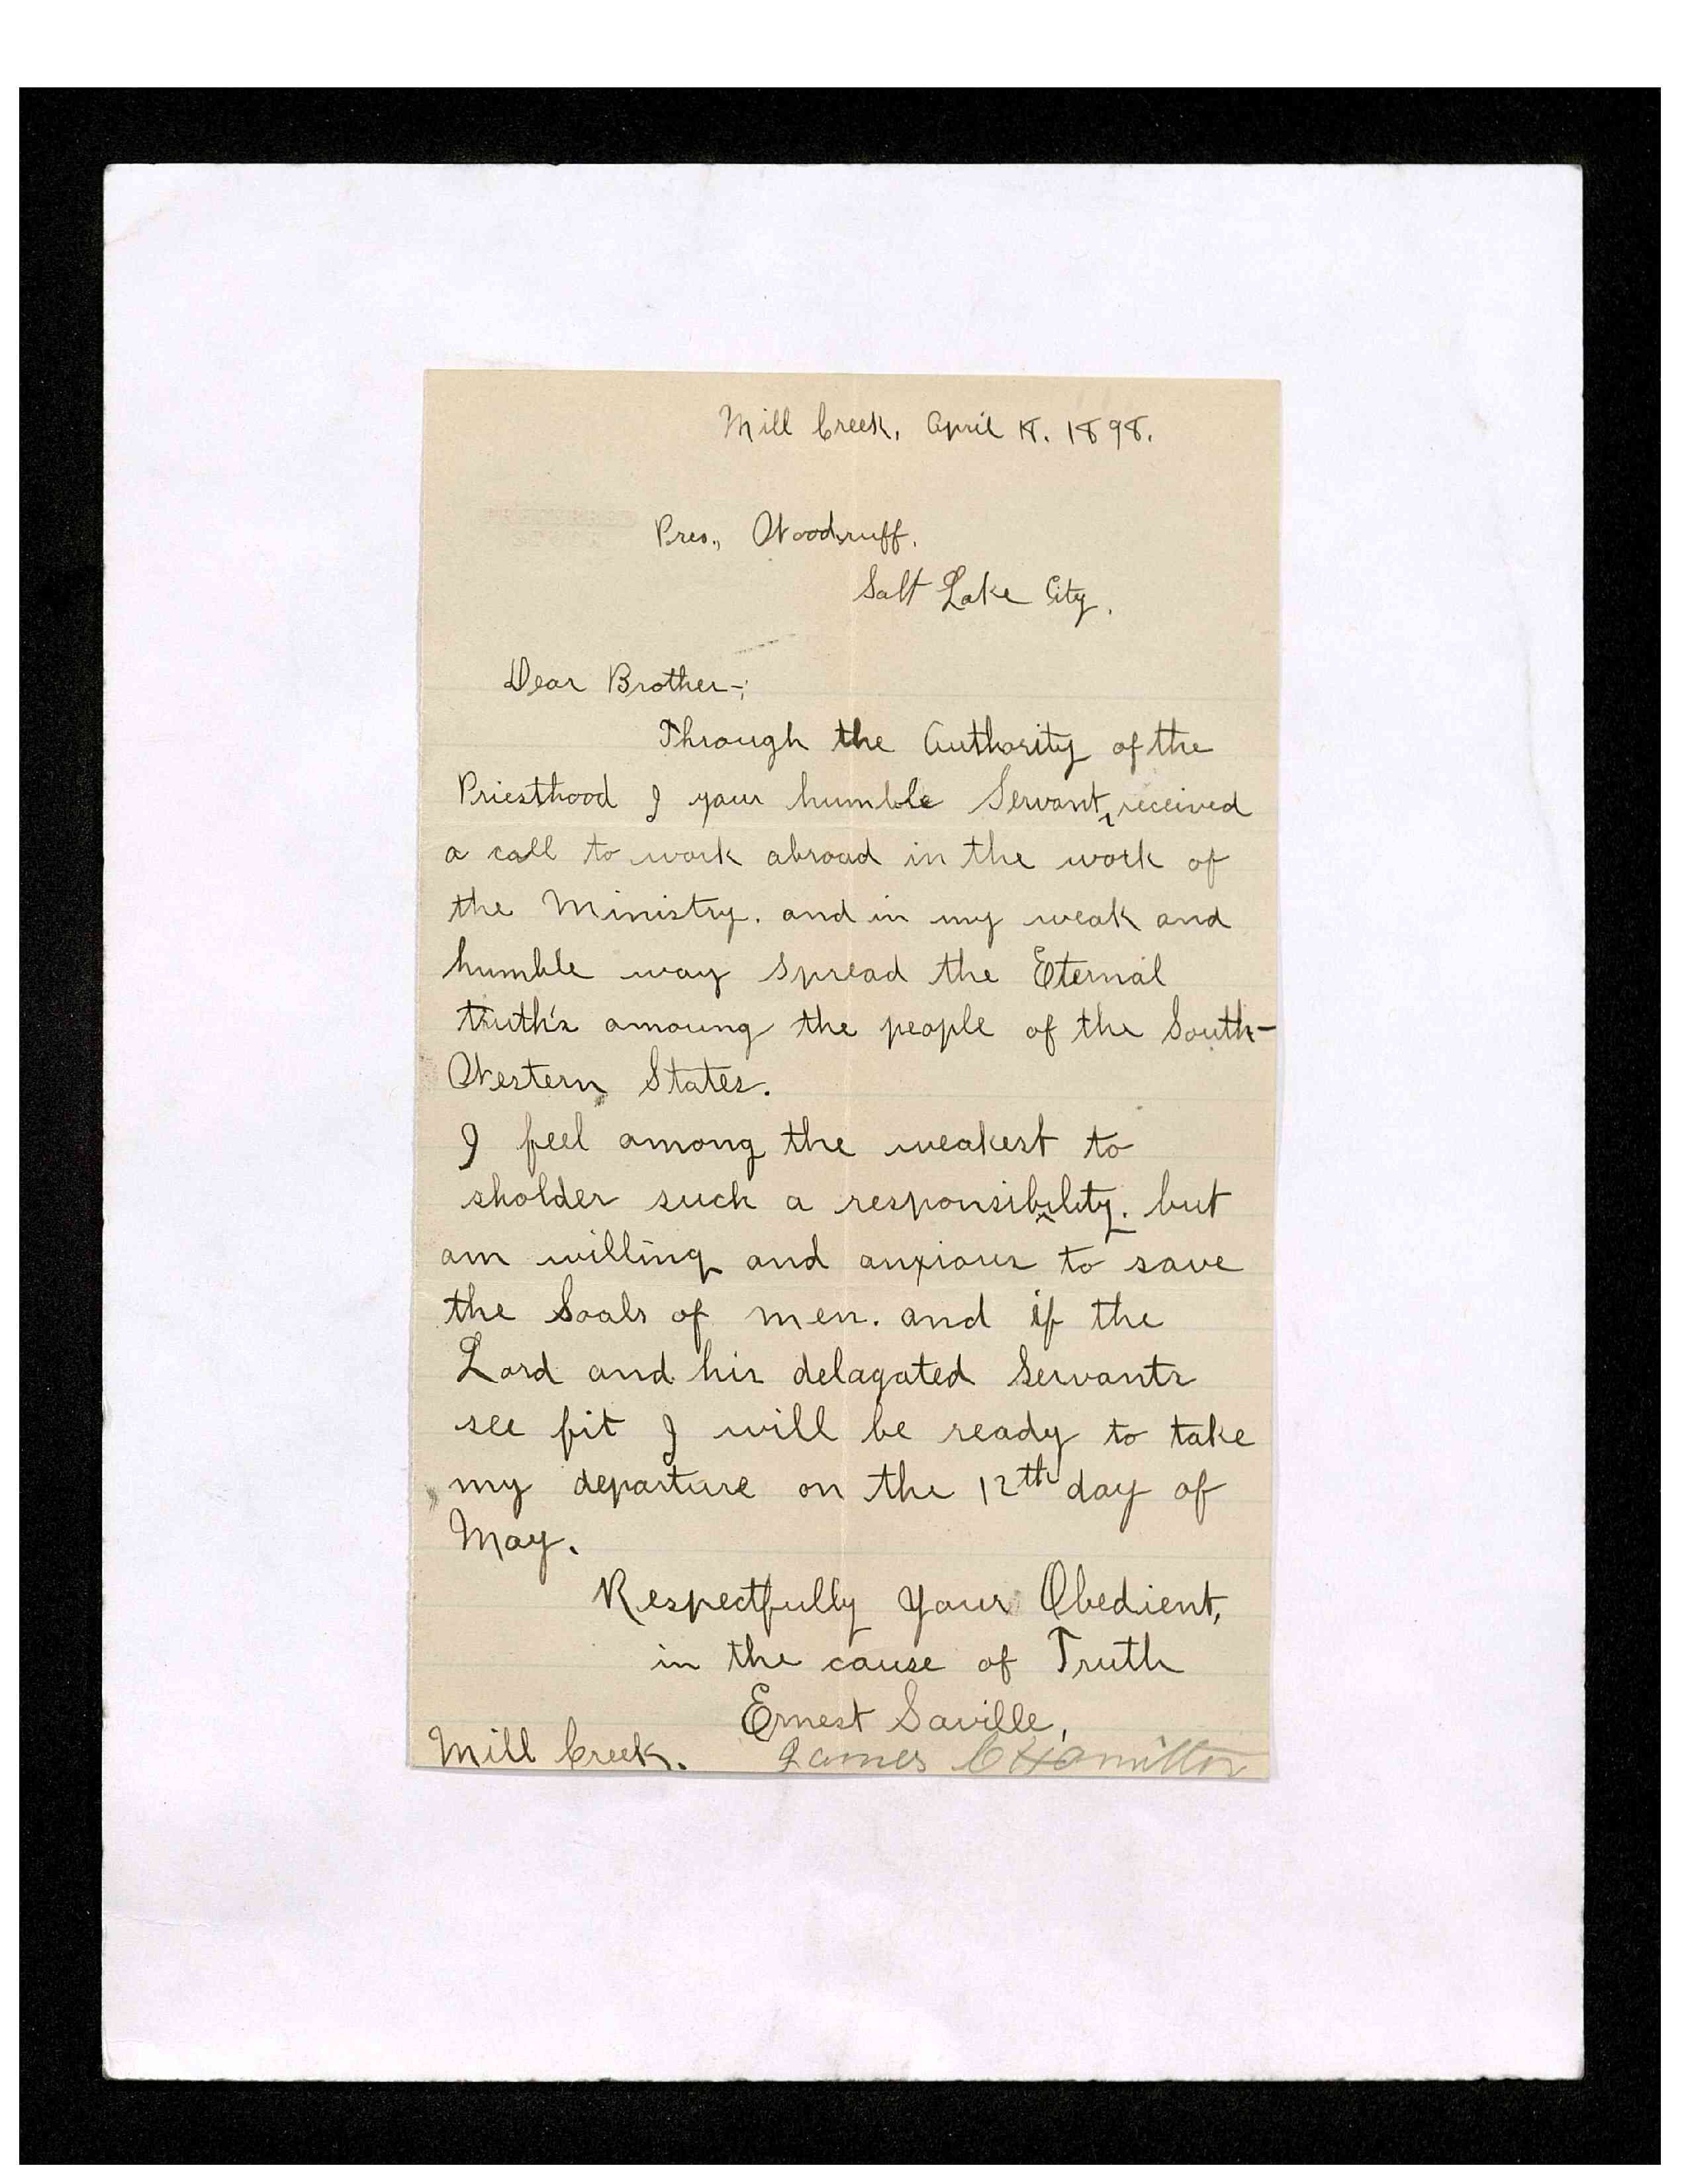 Mill Creek, April 18. 1898.
Pres., Woodruff.
Salt Lake City.
Dear Brother-;
Through the Authority of the
Priesthood I your humble Servant, received
a call to work abroad in the work of
the Ministry. and in my weak and
humble way spread the Eternal
truth's amoung the people of the South-
Western States.
I feel among the weakest to
sholder such a responsibility. but
am willing and anxious to save
the Soals of men. and if the
Lord and his delagated Servants
see fit I will be ready to take
my departure on the 12th day of
May.
Respectfully Your Obedient,
in the cause of Truth
Ernest Saville,
Mill Creek. James C Hamilton